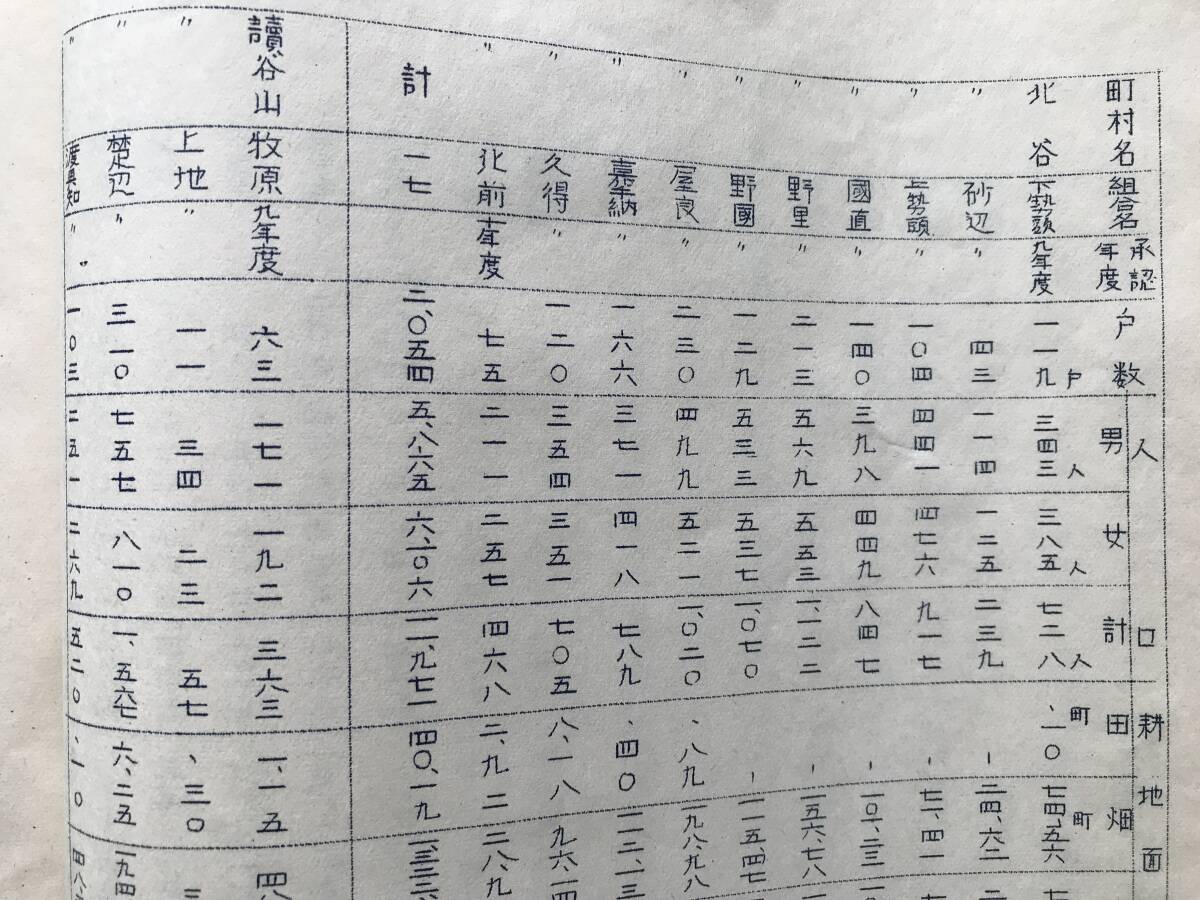 町村名 組合名 承認年度 戸数 人口 男 女 計 耕地面 田 畑
北谷 下勢頭 九年度 一一九戸 三四三人 三八五人 七二八人 、一〇町 七四、五六町
〃 砂辺 〃 四三 一一四 一二五 二三九 ー 二四、六二
〃 上勢頭 〃 一〇四 四四一 四七六 九一七 ー 七一、四一
〃 國直 〃 一四〇 三九八 四四九 八四七 ー 一〇一、二三
〃 野里 〃 二一三 五六九 五五三 一、一二二 ー 一五六、七八
〃 野國 〃 一二九 五三三 五三七 一、〇七〇 ー 一一五、四七
〃 屋良 〃 二三〇 四九九 五二一 一、〇二〇 、八九 一九八、九八
〃 嘉手納 〃 一六六 三七一 四一八 七八九 、四〇 一一二、一三
〃 久得 〃 一二〇 三五四 三五一 七〇五 八、一八 九六、一四
〃 北前 十年度 七五 二一一 二五七 四六八 二、九二 二八、九
計 一七 二、〇五四 五、八六五 六、一〇六 一一、九七一 四〇、一九 一、三三二、
讀谷山 牧原 九年度 六三 一七一 一九二 三六三 一、一五 四八
〃 上地 〃 一一 三四 二三 五七 、三〇
〃 楚辺 〃 三一〇 七五七 八一〇 一、五六七 六、二五 一九四
〃 渡具知 〃 一〇三 二五一 二六九 五二〇 、一〇 四八、